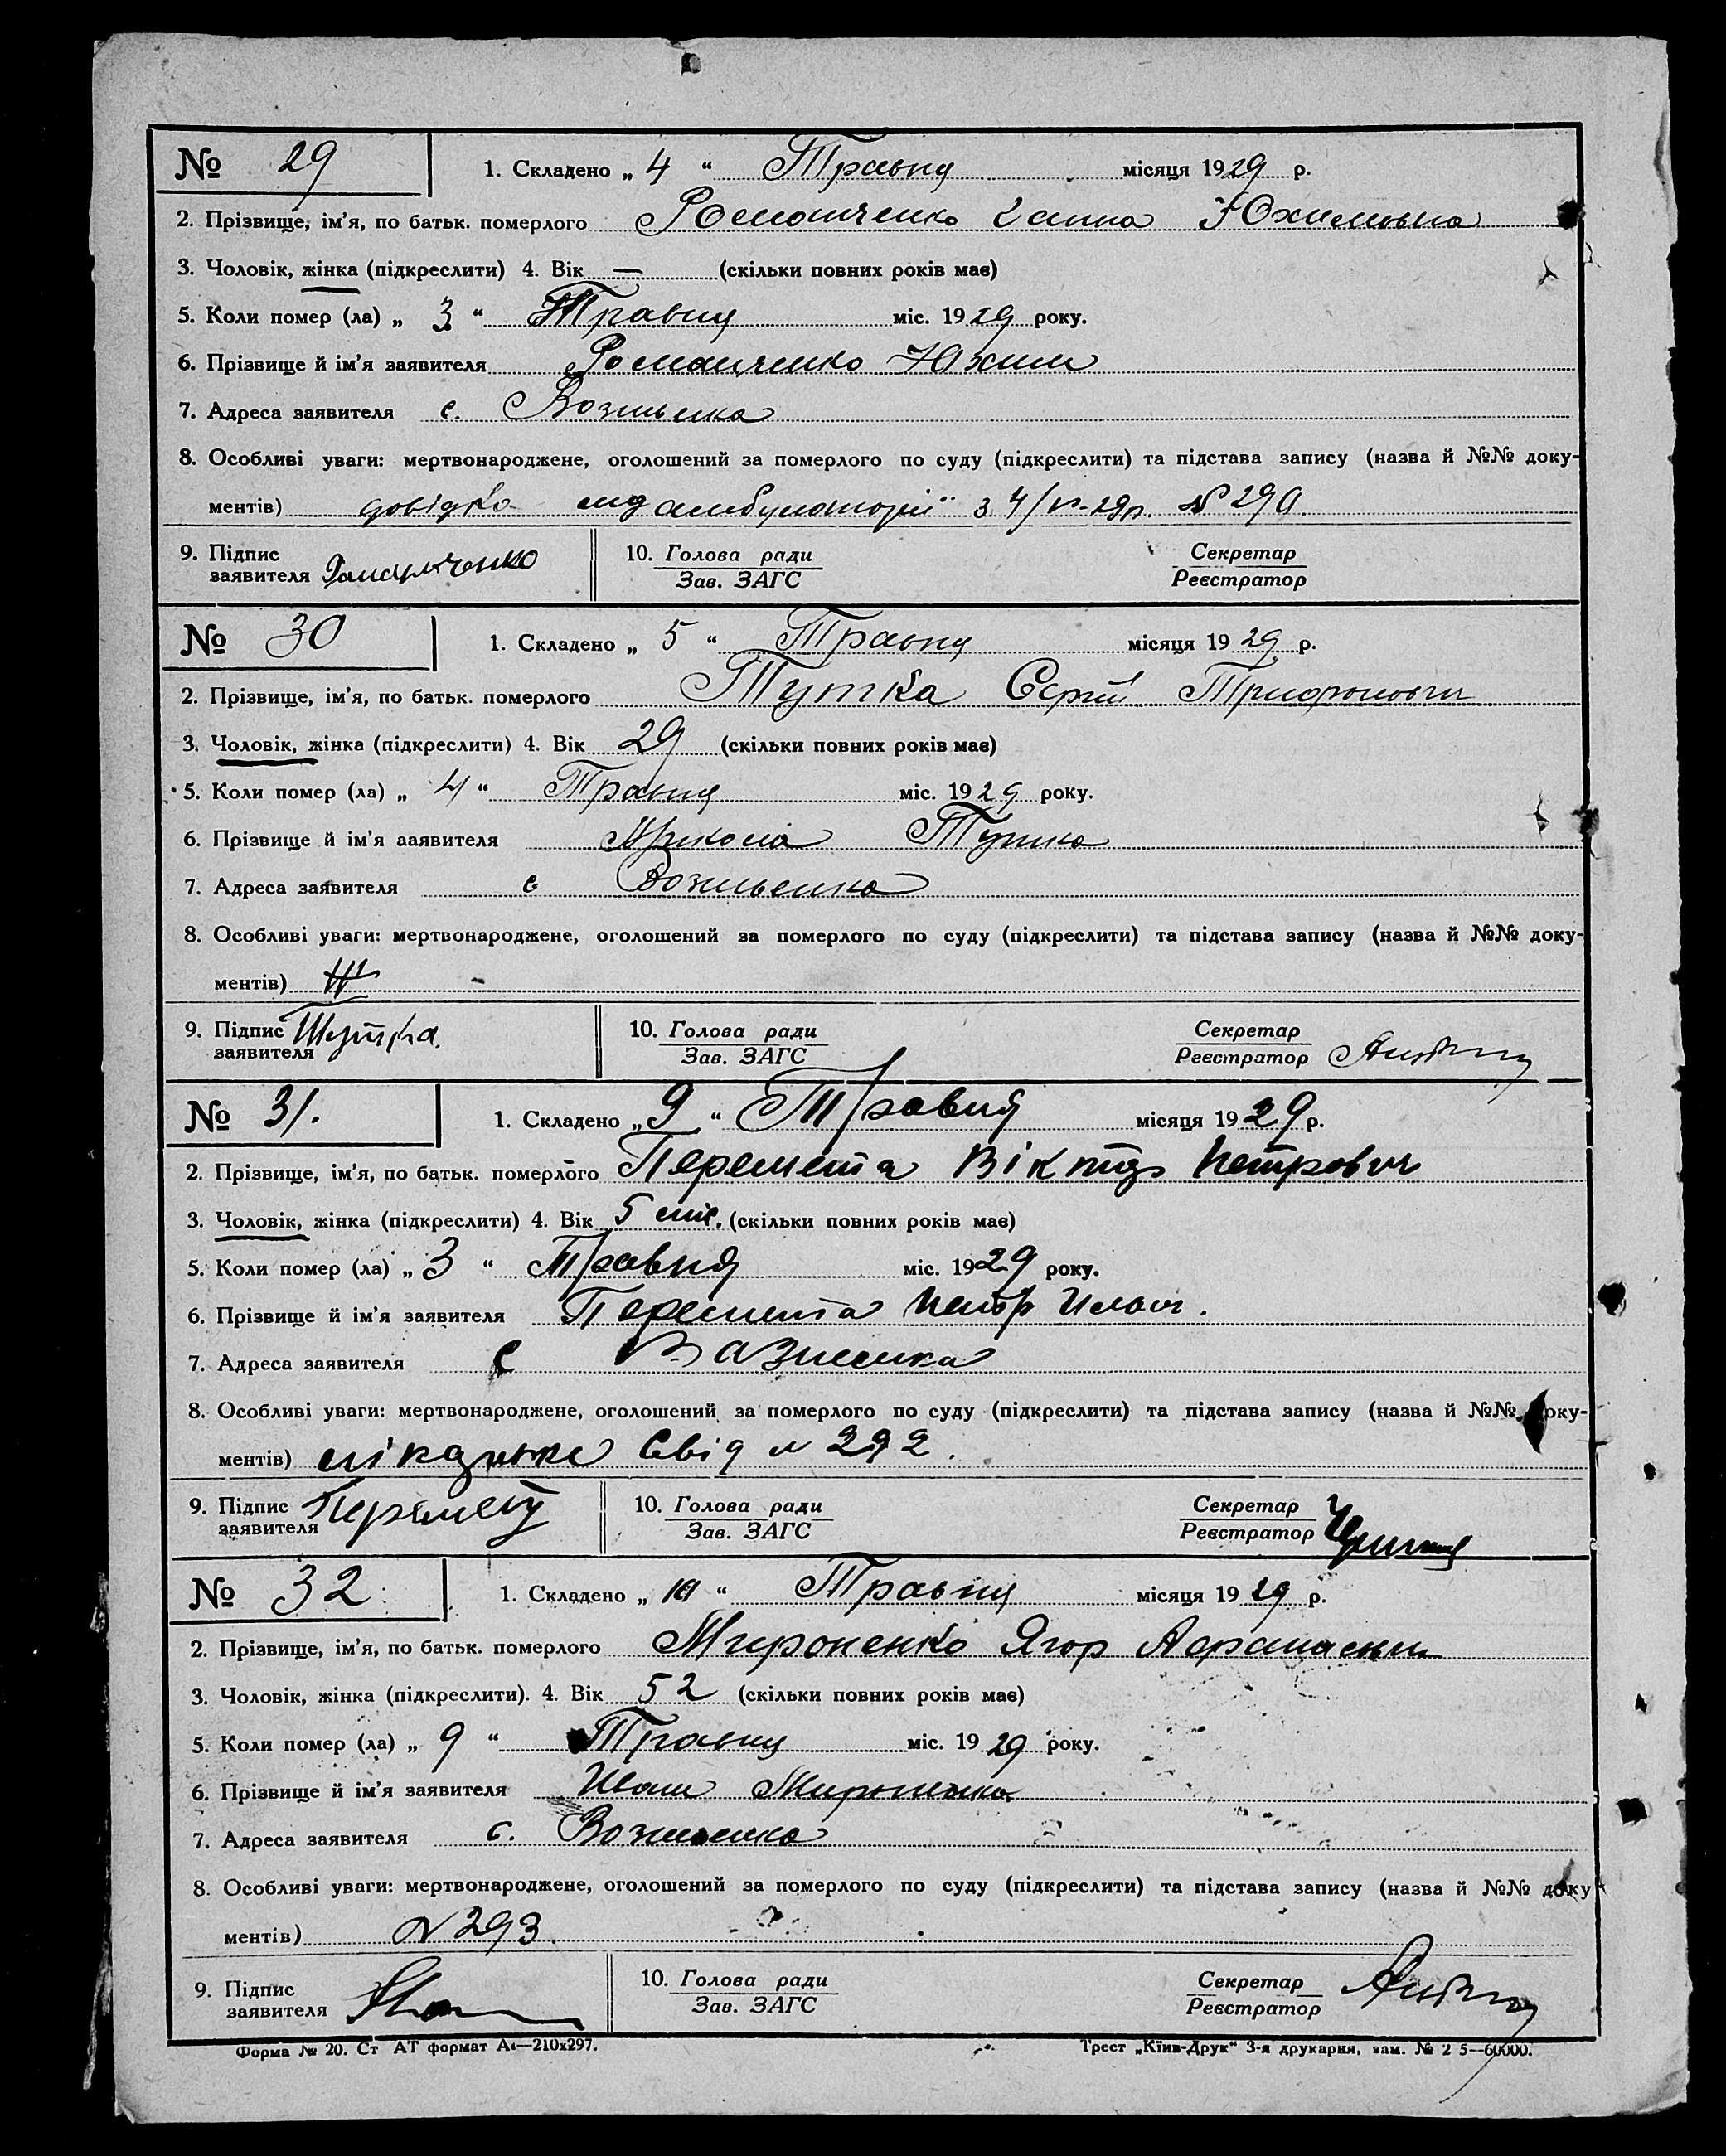 № 29 1. Складено „ 4 “ Травня місяця 1929 р.
2. Прізвище, ім’я, по батьк. померлого Романченко Ганна Юхимовна
3. Чоловік, жінка (підкреслити) 4. Вік — (скільки повних років має)
5. Коли помер (ла) „ 3 “ Травня міс. 1929 року.
6. Прізвище й ім’я заявителя Романченко Юхим
7. Адреса заявителя с. Вознесенка
8. Особливі уваги: мертвонароджене, оголошений за померлого по суду (підкреслити) та підстава запису (назва й №№ доку-
ментів) довідка амбулаторії з 4/V-29р. №
9. Підпис заявителя Романченко 10. Голова ради Зав. ЗАГС Секретар Реєстратор
№ 30 1. Складено „ 5 “ Травня місяця 1929 р.
2. Прізвище, ім’я, по батьк. померлого Тутка Сергій Трифонович
3. Чоловік, жінка (підкреслити) 4. Вік 29 (скільки повних років має)
5. Коли помер (ла) „ 4 “ Травня міс. 1929 року.
6. Прізвище й ім’я ааявителя Микола Тутка
7. Адреса заявителя с Вознесенка
8. Особливі уваги: мертвонароджене, оголошений за померлого по суду (підкреслити) та підстава запису (назва й №№ доку-
ментів)
9. Підпис заявителя Тутка. 10. Голова ради Зав. ЗАГС Секретар Реєстратор
№ 31. 1. Складено „ 9 “ Травня місяця 1929 р.
2. Прізвище, ім’я, по батьк. померлого Перемета Віктор Петрович
3. Чоловік, жінка (підкреслити) 4. Вік 5 міс. (скільки повних років має)
5. Коли помер (ла) „ 3 “ Травня міс. 1929 року.
6. Прізвище й ім’я заявителя Перемета Петр Ильич.
7. Адреса заявителя с Вазнесенка
8. Особливі уваги: мертвонароджене, оголошений за померлого по суду (підкреслити) та підстава запису (назва й №№ доку-
ментів) лікарське Свід № 292.
9. Підпис заявителя 10. Голова ради Зав. ЗАГС Секретар Реєстратор
№ 32 1. Складено „ 10 “ Травня місяця 1929 р.
2. Прізвище, ім’я, по батьк. померлого Мироненко Ягор
3. Чоловік, жінка (підкреслити). 4. Вік 52 (скільки повних років має)
5. Коли помер (ла) „ 9 “ Травня міс. 1929 року.
6. Прізвище й ім’я заявителя Иван Мироненко
7. Адреса заявителя с. Вознесенка
8. Особливі уваги: мертвонароджене, оголошений за померлого по суду (підкреслити) та підстава запису (назва й №№ доку
ментів) № 293.
9. Підпис заявителя 10. Голова ради Зав. ЗАГС Секретар Реєстратор
Форма № 20. Ст АТ формат А₄—210х297. Трест „Київ-Друк“ 3-я друкарня, зам. № 2 5—60000.